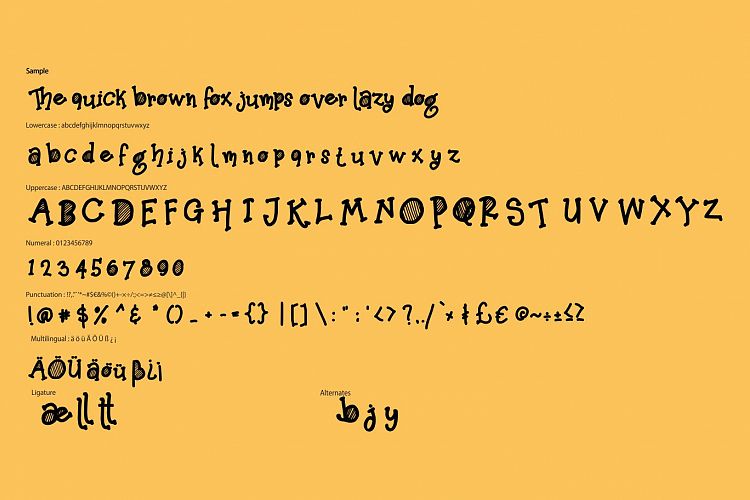 Sample
The quick brown fox jumps over lazy dog
Lowercase : abcdefghijklmnopqrstuvwxyz
a b c d e f g h i j k l m n o p q r s t u v w x y z
Uppercase : ABCDEFGHIJKLMNOPQRSTUVWXYZ
A B C D E F G H I J K L M N O P Q R S T U V W X Y Z
Numeral : 0123456789
1 2 3 4 5 6 7 8 9 0
Punctuation :
! @ # $ % ^ & * ( ) _ + - = { } | [ ] \ : " ; ' < > ? , . /
Multilingual : ä ö ü Ä Ö Ü ß ¿ ¡
Ä Ö Ü ä ö ü ß ¿ ¡
Ligature
Alternates
æ ll tt
b j y